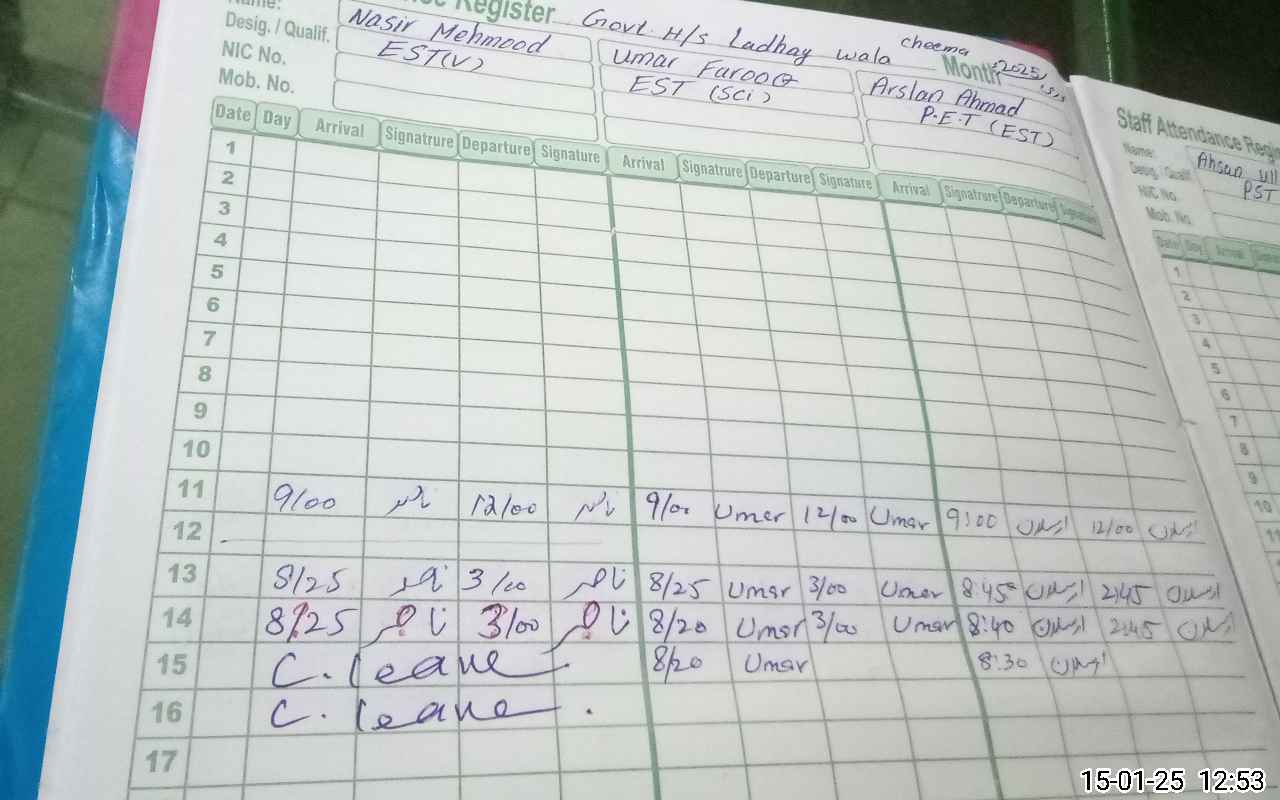 Register Govt. H/s Ladhay wala cheema
Name: Nasir Mehmood Umar Farooq Arslan Ahmad Month 2025
Desig. / Qualif. EST(V) EST (SCI) P.E.T (EST)
NIC No.
Mob. No.
Date Day Arrival Signatrure Departure Signature Arrival Signatrure Departure Signature Arrival Signatrure Departure Signature
1
2
3
4
5
6
7
8
9
10
11 9/00 ناصر 12/00 ناصر 9/00 Umar 12/00 Umar 9:00 ارسلان 12/00 ارسلان
12
13 8/25 ناصر 3/00 ناصر 8/25 Umar 3/00 Umar 8:45 ارسلان 2:45 ارسلان
14 8:25 ناصر 3/00 ناصر 8/20 Umar 3/00 Umar 8:40 ارسلان 2:45 ارسلان
15 C. leave. 8/20 Umar 8:30 ارسلان
16 C. leave.
17
Staff Attendance Regi
Name: Ahsan Ull
Desig. / Qualif. PST
NIC No.
Mob. No.
Date Day Arrival
1
2
3
4
5
6
7
8
9
10
11
15-01-25 12:53